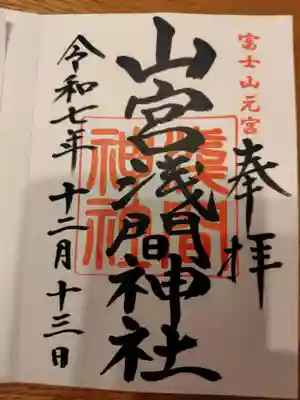 富士山元宮
奉拝
山宮浅間神社
淺間神社
令和七年十二月十三日